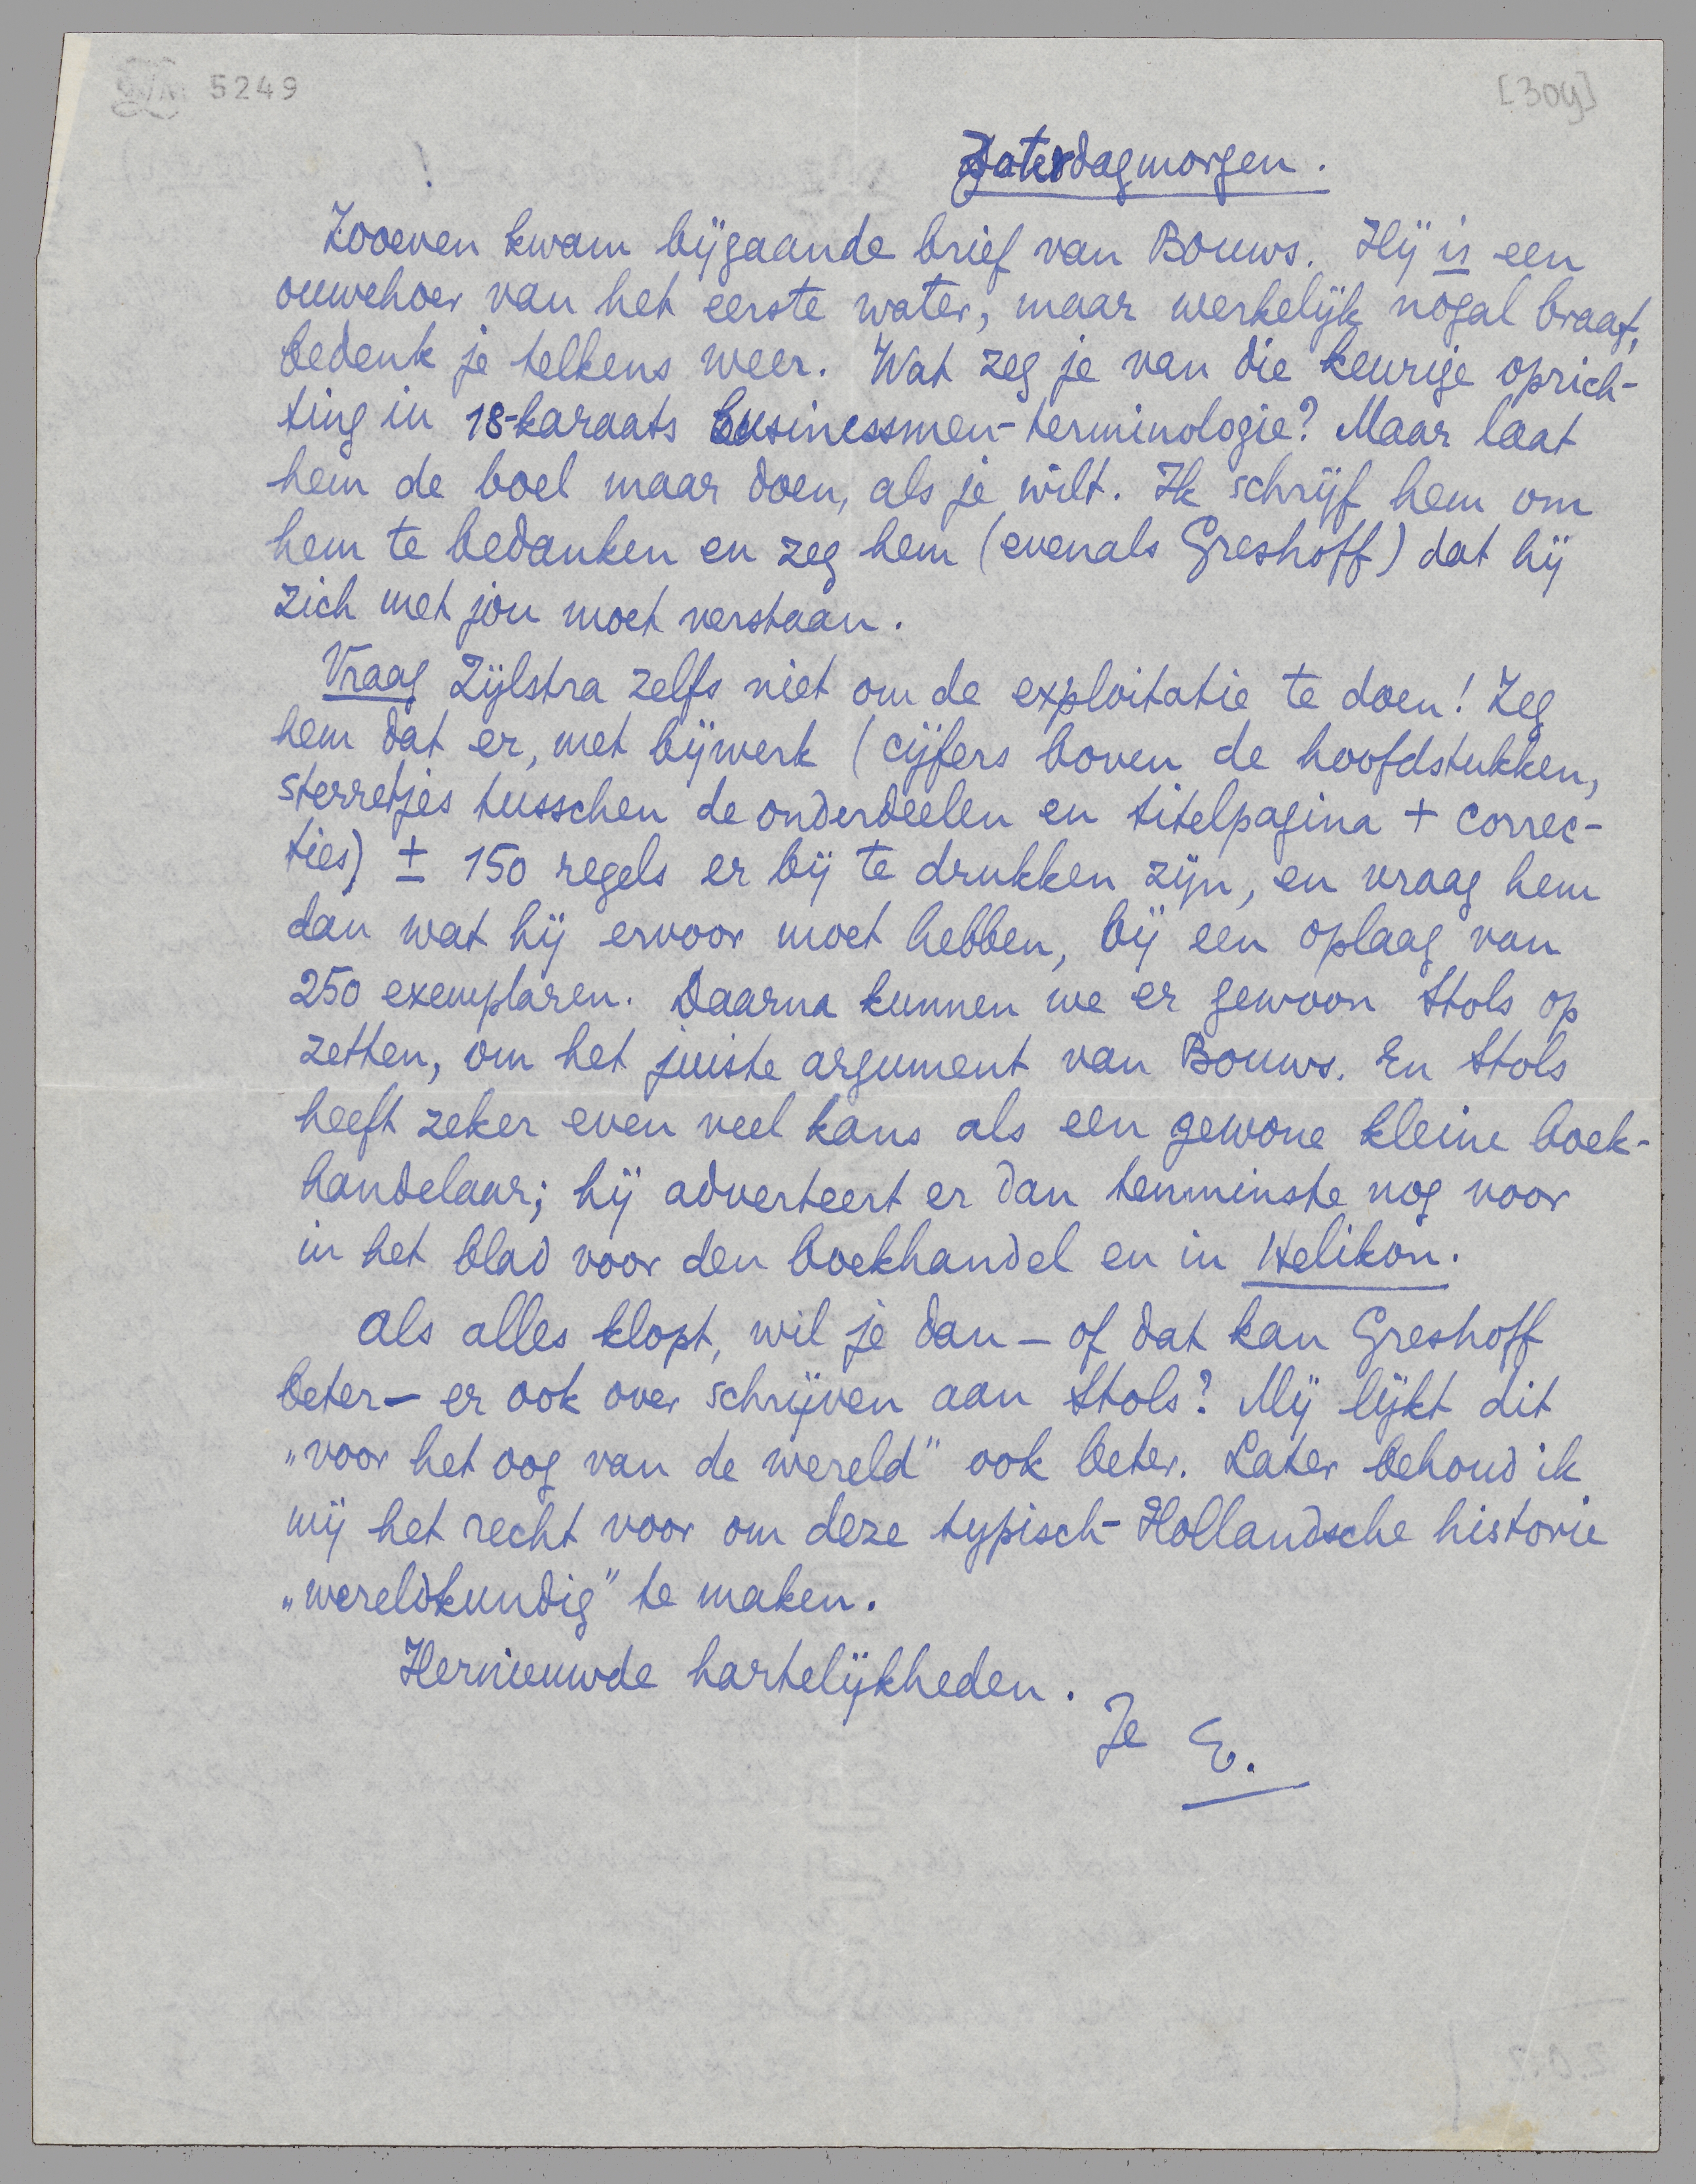 5249
[304]
Zaterdagmorgen.
Zooeven kwam bijgaande brief van Bouws. Hij is een
ouwehoer van het eerste water, maar werkelijk nogal braaf,
bedenk je telkens weer. Wat zeg je van die keurige oprich-
ting in 18-karaats businessmen-terminologie? Maar laat
hem de boel maar doen, als je wilt. Ik schrijf hem om
hem te bedanken en zeg hem (evenals Greshoff) dat hij
zich met jou moet verstaan.
Vraag Zijlstra zelfs niet om de exploitatie te doen! Zeg
hem dat er, met bijwerk (cijfers boven de hoofdstukken,
sterretjes tusschen de onderdeelen en titelpagina + correc-
ties) ± 150 regels er bij te drukken zijn, en vraag hem
dan wat hij ervoor moet hebben, bij een oplaag van
250 exemplaren. Daarna kunnen we er gewoon Stols op
zetten, om het juiste argument van Bouws. En Stols
heeft zeker even veel kans als een gewone kleine boek-
handelaar; hij adverteert er dan tenminste nog voor
in het blad voor den boekhandel en in Helikon.
Als alles klopt, wil je dan – of dat kan Greshoff
beter – er ook over schrijven aan Stols? Mij lijkt dit
„voor het oog van de wereld” ook beter. Later behoud ik
mij het recht voor om deze typisch-Hollandsche historie
„wereldkundig” te maken.
Hernieuwde hartelijkheden.
Je E.